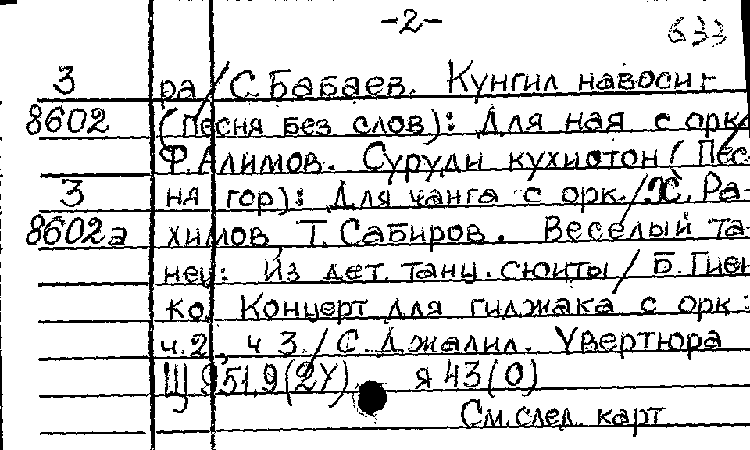 -2-
633
3 ра/С.Бабаев. Кунгил навоси
8602 (Песня без слов): Для ная с орк
Ф.Алимов. Суруди кухистон (Пес
3 ня гор): Для чанга с орк./Х. Ра-
8602а химов, Т.Сабиров. Веселый та-
нец: Из дет. танц. сюиты/Б.Гиен
ко. Концерт для гиджака с орк.:
ч.2, ч 3./С.Джалил. Увертюра
Щ 951.9(2У) я 43(0)
См.след. карт